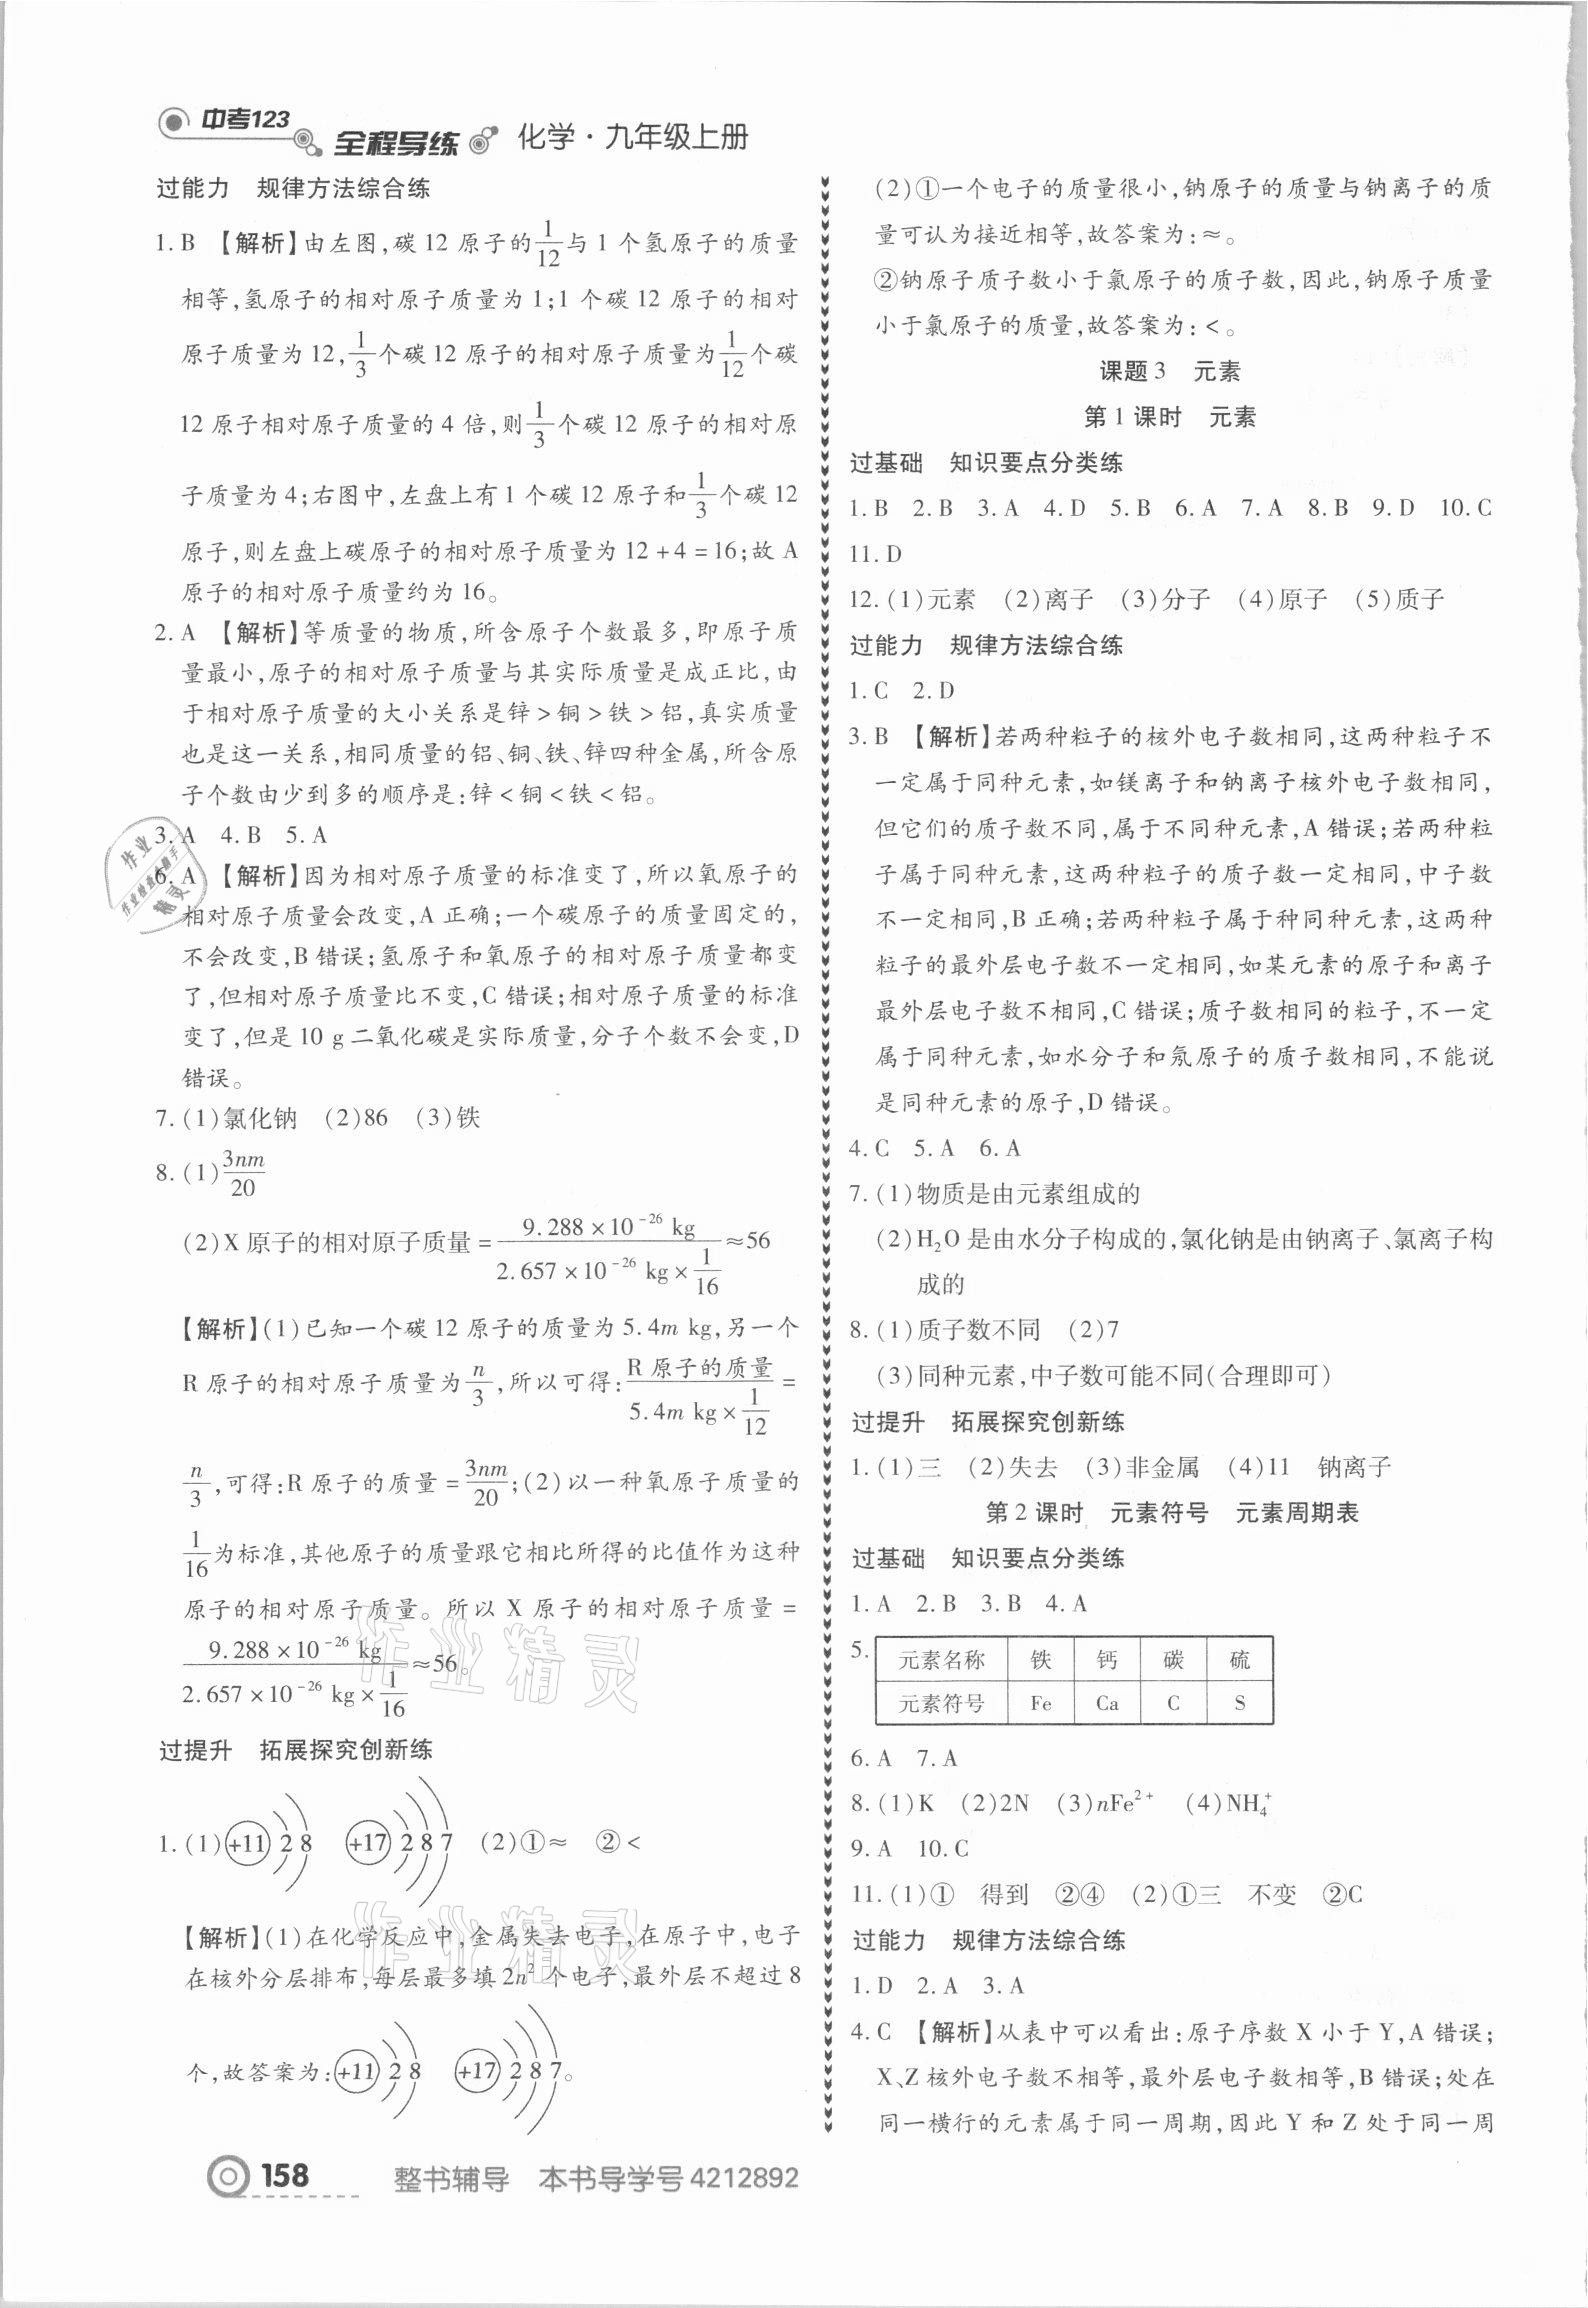 中考123
全程导练 化学·九年级上册
过能力 规律方法综合练
1. B 【解析】由左图,碳 12 原子的1/12与 1 个氢原子的质量
相等,氢原子的相对原子质量为 1;1 个碳 12 原子的相对
原子质量为 12,1/3个碳 12 原子的相对原子质量为1/12个碳
12 原子相对原子质量的 4 倍,则1/3个碳 12 原子的相对原
子质量为 4;右图中,左盘上有 1 个碳 12 原子和1/3个碳 12
原子,则左盘上碳原子的相对原子质量为 12 + 4 = 16;故 A
原子的相对原子质量约为 16。
2. A 【解析】等质量的物质,所含原子个数最多,即原子质
量最小,原子的相对原子质量与其实际质量是成正比,由
于相对原子质量的大小关系是锌 > 铜 > 铁 > 铝,真实质量
也是这一关系,相同质量的铝、铜、铁、锌四种金属,所含原
子个数由少到多的顺序是:锌 < 铜 < 铁 < 铝。
3. A 4. B 5. A
6. A 【解析】因为相对原子质量的标准变了,所以氧原子的
相对原子质量会改变,A 正确;一个碳原子的质量固定的,
不会改变,B 错误;氢原子和氧原子的相对原子质量都变
了,但相对原子质量比不变,C 错误;相对原子质量的标准
变了,但是 10 g 二氧化碳是实际质量,分子个数不会变,D
错误。
7. (1)氯化钠 (2)86 (3)铁
8. (1)3nm/20
(2)X 原子的相对原子质量 = 9.288 × 10⁻²⁶ kg / (2.657 × 10⁻²⁶ kg × 1/16) ≈56
【解析】(1)已知一个碳 12 原子的质量为 5.4m kg,另一个
R 原子的相对原子质量为n/3,所以可得:R 原子的质量 / (5.4m kg × 1/12) =
n/3,可得:R 原子的质量 = 3nm/20;(2)以一种氧原子质量的
1/16为标准,其他原子的质量跟它相比所得的比值作为这种
原子的相对原子质量。所以 X 原子的相对原子质量 =
9.288 × 10⁻²⁶ kg / (2.657 × 10⁻²⁶ kg × 1/16) ≈56。
过提升 拓展探究创新练
1. (1) +11 2 8 +17 2 8 7 (2)①≈ ②<
【解析】(1)在化学反应中,金属失去电子,在原子中,电子
在核外分层排布,每层最多填 2n² 个电子,最外层不超过 8
个,故答案为: +11 2 8 +17 2 8 7。
158 整书辅导 本书导学号 4212892
(2)①一个电子的质量很小,钠原子的质量与钠离子的质
量可认为接近相等,故答案为:≈。
②钠原子质子数小于氯原子的质子数,因此,钠原子质量
小于氯原子的质量,故答案为:<。
课题 3 元素
第 1 课时 元素
过基础 知识要点分类练
1. B 2. B 3. A 4. D 5. B 6. A 7. A 8. B 9. D 10. C
11. D
12. (1)元素 (2)离子 (3)分子 (4)原子 (5)质子
过能力 规律方法综合练
1. C 2. D
3. B 【解析】若两种粒子的核外电子数相同,这两种粒子不
一定属于同种元素,如镁离子和钠离子核外电子数相同,
但它们的质子数不同,属于不同种元素,A 错误;若两种粒
子属于同种元素,这两种粒子的质子数一定相同,中子数
不一定相同,B 正确;若两种粒子属于种同种元素,这两种
粒子的最外层电子数不一定相同,如某元素的原子和离子
最外层电子数不相同,C 错误;质子数相同的粒子,不一定
属于同种元素,如水分子和氖原子的质子数相同,不能说
是同种元素的原子,D 错误。
4. C 5. A 6. A
7. (1)物质是由元素组成的
(2)H₂O 是由水分子构成的,氯化钠是由钠离子、氯离子构
成的
8. (1)质子数不同 (2)7
(3)同种元素,中子数可能不同(合理即可)
过提升 拓展探究创新练
1. (1)三 (2)失去 (3)非金属 (4)11 钠离子
第 2 课时 元素符号 元素周期表
过基础 知识要点分类练
1. A 2. B 3. B 4. A
5. 元素名称 铁 钙 碳 硫
元素符号 Fe Ca C S
6. A 7. A
8. (1)K (2)2N (3)nFe²⁺ (4)NH₄⁺
9. A 10. C
11. (1)① 得到 ②④ (2)①三 不变 ②C
过能力 规律方法综合练
1. D 2. A 3. A
4. C 【解析】从表中可以看出:原子序数 X 小于 Y,A 错误;
X、Z 核外电子数不相等,最外层电子数相等,B 错误;处在
同一横行的元素属于同一周期,因此 Y 和 Z 处于同一周
作业精灵
作业精灵
作业
精灵